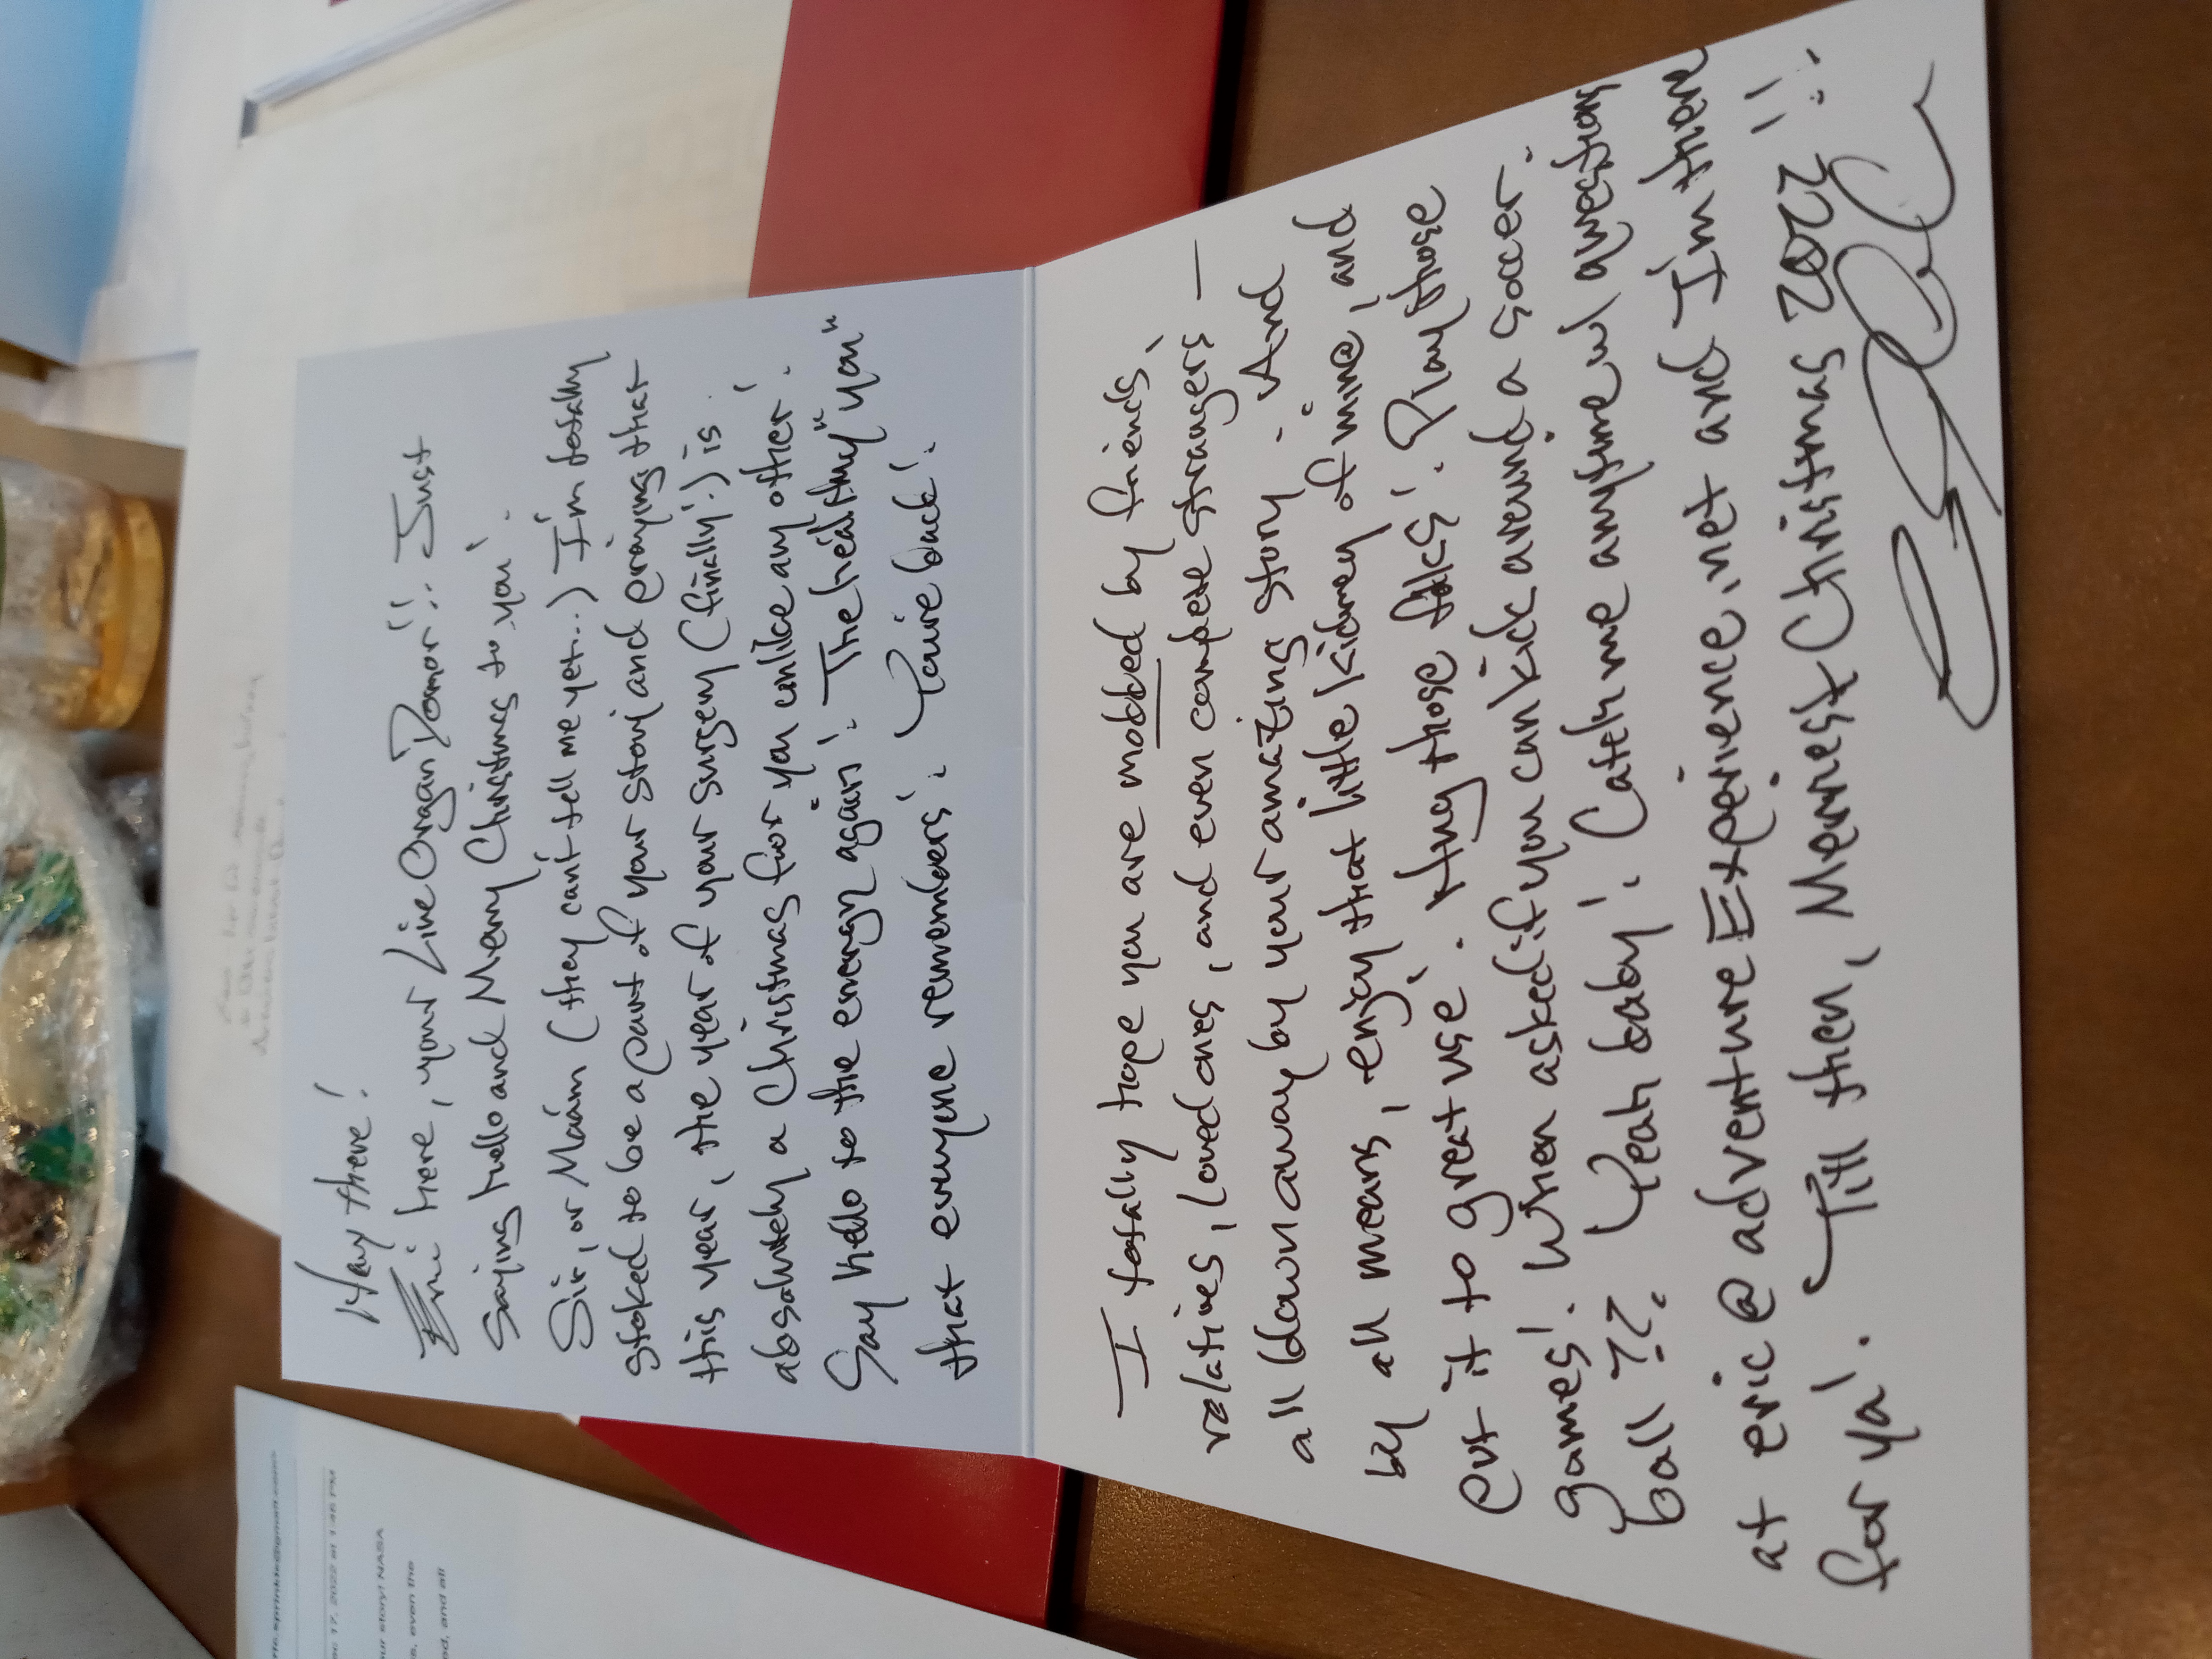 Hay there!
Eric here, your Live Organ Donor!! Just
saying hello and Merry Christmas to you!
Sir, or Máam (they can't tell me yet..) I'm totally
stoked to be a part of your story and praying that
this year, the year of your surgery (finally!) is
absolutely a Christmas for you unlike any other!
Say hello to the energy again! The healthy "you"
that everyone remembers! You're back!
I totally hope you are mobbed by friends,
relatives, loved ones, and even complete strangers —
all blown away by your amazing story. And
by all means, enjoy that little kidney of mine, and
put it to great use! Hug those folks! Play those
games! When asked if you can kick around a soccer
ball ?? Yeah baby! Catch me anytime w/ questions
at eric@adventureExperience.net and I'm there
for ya! Till then, Merriest Christmas 2022 !!
ric.sprinkle@gmail.com>
c 17, 2022 at 1:46 PM
ur story! NASA
s, even the
od, and all
DECEMBER